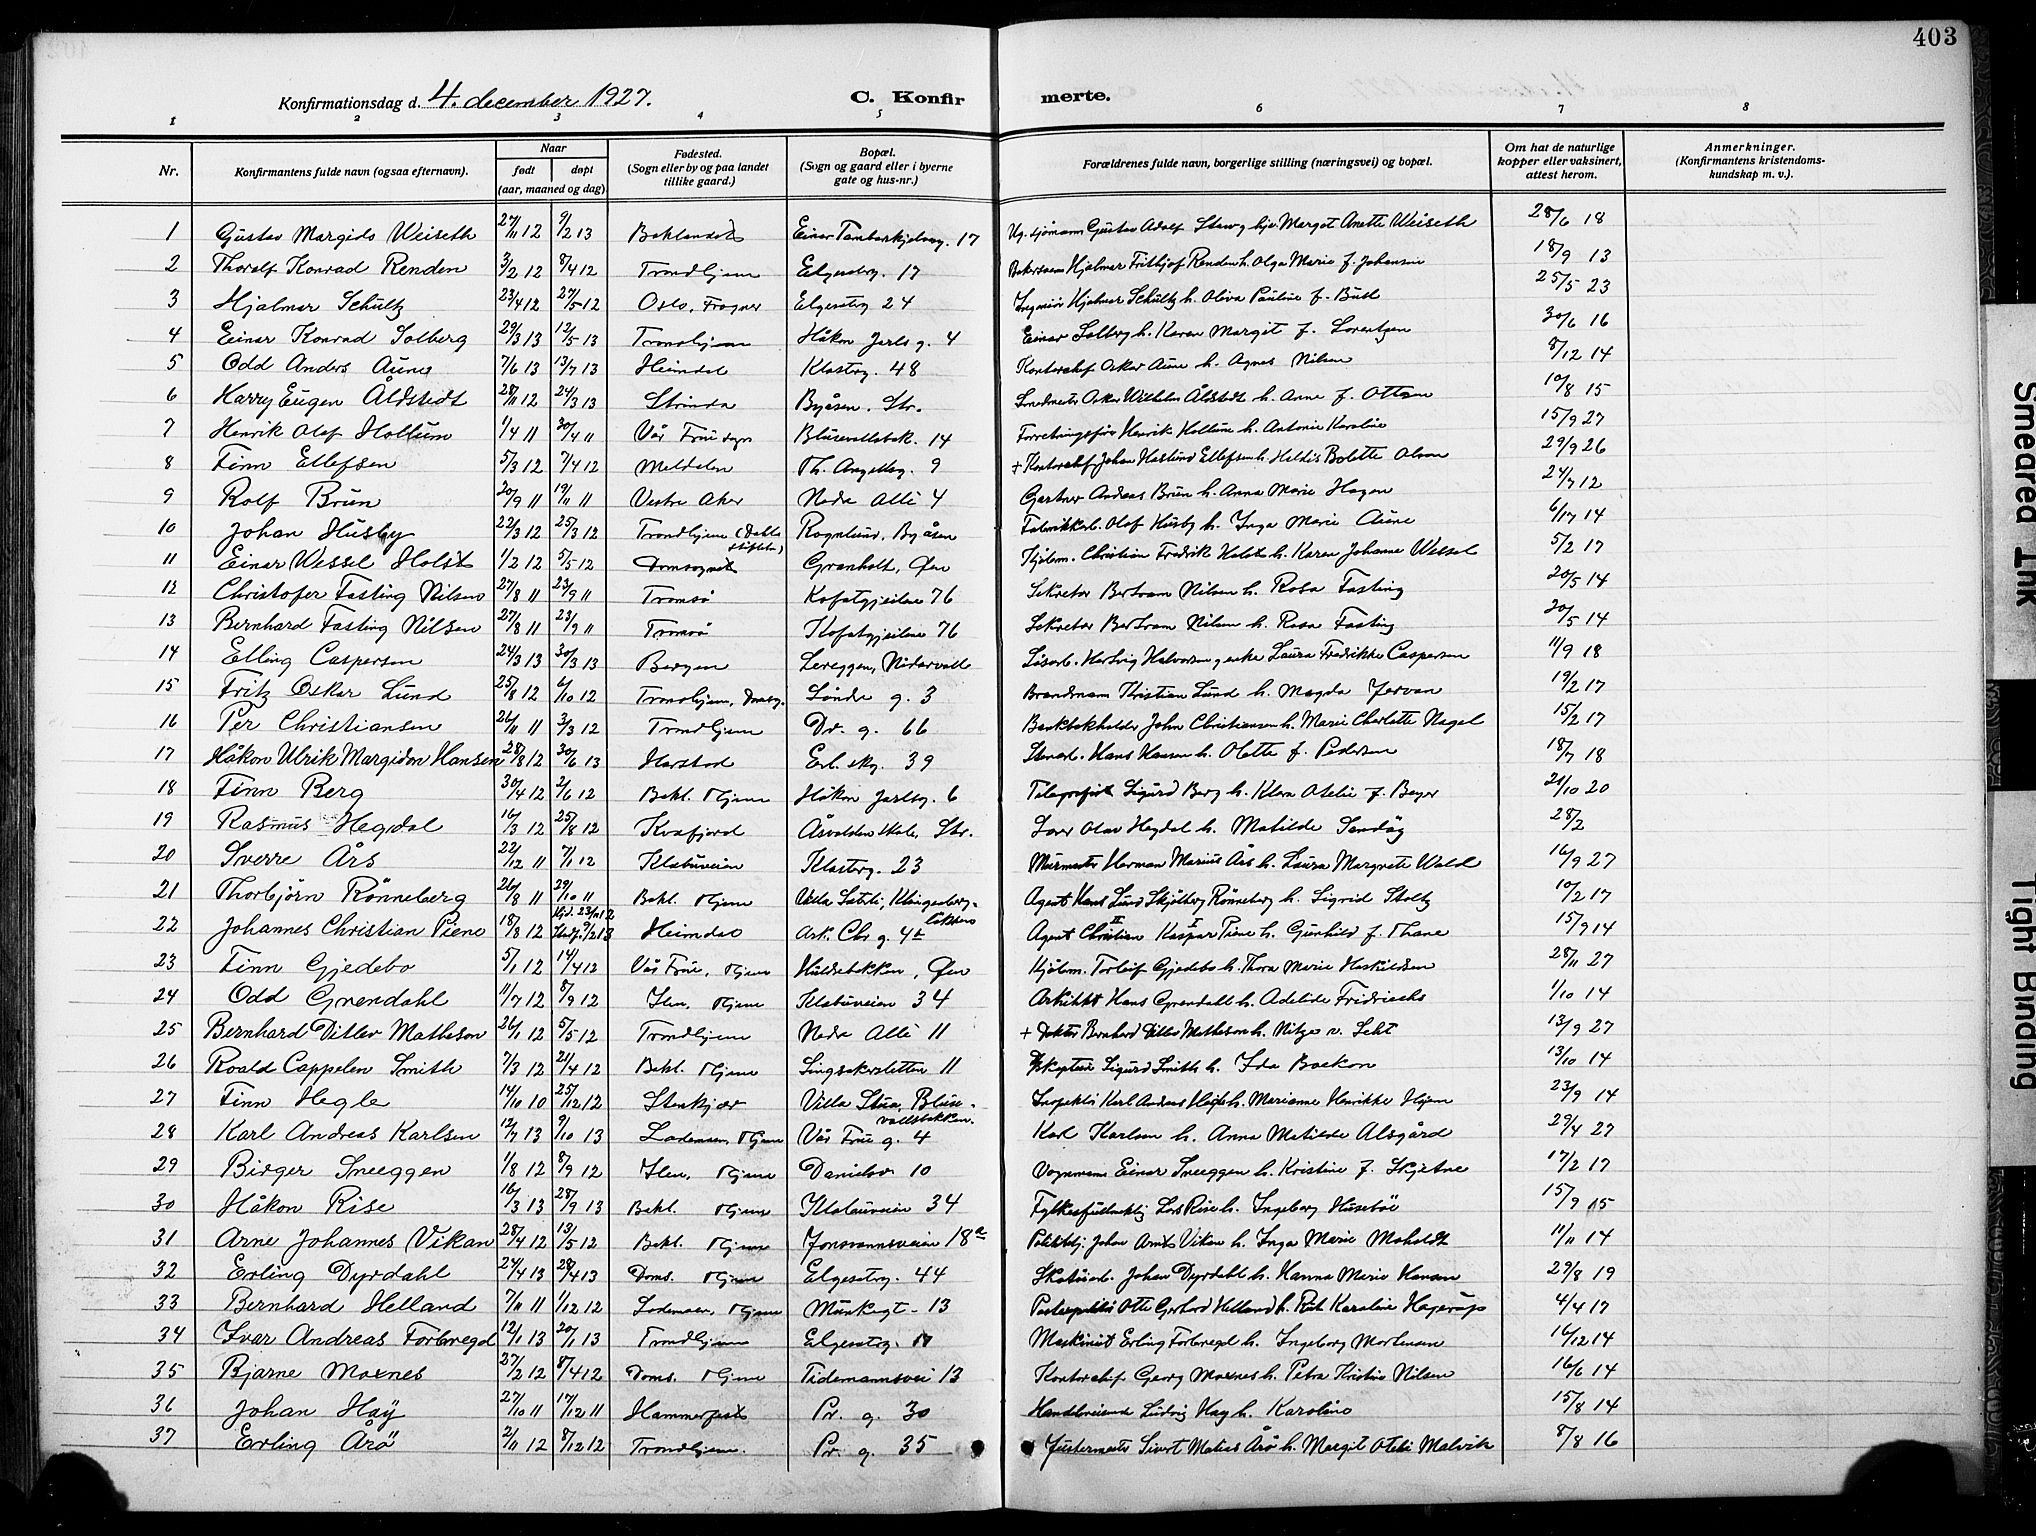 403
Konfirmationsdag d. 4. december 1927.
C. Konfirmerte.
1 2 3 4 5 6 7 8
Nr.
Konfirmantens fulde navn (ogsaa efternavn).
Naar
født
døpt
(aar, maaned og dag)
Fødested.
(Sogn eller by og paa landet
tillike gaard.)
Bopæl.
(Sogn og gaard eller i byerne
gate og hus-nr.)
Forældrenes fulde navn, borgerlige stilling (næringsvei) og bopæl.
Om hat de naturlige
kopper eller vaksinert,
attest herom.
Anmerkninger.
(Konfirmantens kristendoms-
kundskap m. v.).
1 Gustav Margido Weiseth 27/11 12 9/2 13 Baklandet Einar Tambarskjelvsg. 17 Ug. sjømann Gustav Adolf Stav g hjv. Margot Anette Weiseth 28/6 18
2 Thoralf Konrad Renden 3/2 12 8/4 12 Trondhjem Elgesetrg. 17 Hjalmar Frithjof Renden h. Olga Marie f. Johansen 18/9 13
3 Hjalmar Schultz 23/4 12 27/5 12 Oslo, Frogner Elgesetrg 24 Ingeniør Hjalmar Schultz h. Oliva Pauline f. 25/5 23
4 Einar Konrad Solberg 29/3 13 12/5 13 Trondhjem Håkon Jarls g. 4 Einar Solberg h. Karen Margit f. Lorentzen 30/6 16
5 Odd Anders Aune 7/6 13 13/7 13 Heimdal Klostrg. 48 Kontorchef Oskar Aune h. Agnes Nilsen 8/12 14
6 Harry Eugen Åldstedt 28/11 12 24/3 13 Strinda Byåsen. Str. Smedmester Oskar Wilhelm Åldstedt h. Anne f. Ottesen 10/8 15
7 Henrik Olaf Hollum 1/4 11 30/4 11 Vår Frue sogn Blusevoldsbak. 14 Forretningsfører Henrik Hollum h. Antonie Karoline 15/9 27
8 Finn Ellefsen 5/3 12 7/4 12 Meldalen Th. Angellsg. 9 + Kontorchef Johan Haslund Ellefsen h. Haldis Bolette Olsen 29/9 26
9 Rolf Brun 20/9 11 19/11 11 Vestre Aker Nedre Allé 4 Gartner Andreas Brun h. Anna Marie Hagen 24/7 12
10 Johan Husby 22/3 12 25/3 12 Trondhjem (Dahls stiftelse) Rognlund, Byåsen Fabrikkarb. Olaf Husby h. Inga Marie Aune 6/17 14
11 Einar Wessel Holst 1/2 12 5/5 12 Domsognet Granholt, Øen Kjøbm. Christian Fredrik Holst h. Karen Johanne Wessel 5/2 17
12 Christofer Fasting Nilsen 27/8 11 23/9 11 Tromsø Kofotgjeilene 76 Sekretær Bertram Nilsen h. Rosa Fasting 20/5 14
13 Bernhard Fasting Nilsen 27/8 11 23/9 11 Tromsø Kofotgjeilene 76 Sekretær Bertram Nilsen h. Rosa Fasting 20/5 14
14 Elling Caspersen 24/3 13 30/3 13 Bergen Lereggen, Nidarvoll Løsarb. Hartvig Halvorsen g enke Laura Fredrikke Caspersen 11/9 18
15 Fritz Oskar Lund 25/8 12 6/10 12 Trondhjem, Domsg. Søndre g. 3 Brandmann Kristian Lund h. Magda Jørvan 19/2 17
16 Per Christiansen 26/11 11 3/3 12 Trondhjem Dr. g. 66 Bankbokholder John Christiansen h. Marie Charlotte Nagel 15/2 17
17 Håkon Ulrik Margidon Hansen 28/8 12 30/6 13 Harstad Erl. skg. 39 Stenarb. Hans Hansen h. Olette f. Pedersen 18/7 18
18 Finn Berg 30/4 12 2/6 12 Bakl. Thjem Håkon Jarlsg. 6 Telegrafist Sigurd Berg h. Klara Otelie f. Beyer 21/10 20
19 Rasmus Hegdal 16/3 12 25/8 12 Kvæfjord Åsvolden skole, Str. Lærer Olav Hegdal h. Matilde Sandøy 28/2
20 Sverre Års 22/12 11 7/1 12 Klæbuveien Klosterg. 23 Murmester Herman Marius Års h. Laura Margrete Wold 16/9 27
21 Thorbjörn Rönneberg 26/8 11 29/10 11 Bakl. Thjem Villa Solsti, Klingenberg- løkken Agent Hans Lund Skjölberg Rönneberg h. Sigrid Stoltz 10/2 17
22 Johannes Christian Piene 18/8 12 Hjd. 23/11 12 Stadf. 9/2 13 Heimdal Ark. Chr g. 4b Agent Christian Kaspar Piene h. Gunhild f. Thane 15/9 14
23 Finn Gjedebo 5/1 12 14/4 12 Vår Frue, Thjem Huldrebekken, Øen Kjøbm. Torleif Gjedebo h. Thora Marie Haskildsen 28/11 27
24 Odd Grendahl 11/7 12 8/9 12 Ilen, Thjem Klæbuveien 34 Arkitekt Hans Grendahl h. Adelide Fridrichs 1/10 14
25 Bernhard Ditlev Matheson 26/1 12 5/5 12 Trondhjem Nedre Allé 11 + Doktor Bernhard Ditlev Matheson h. 13/9 27
26 Roald Cappelen Smith 7/3 12 21/4 12 Bakl. Thjem Singsakersletten 11 Sigurd Smith h. Ida Backon 13/10 14
27 Finn Hegle 14/10 10 25/12 12 Stenkjær Villa Stua, Bluse- voldsbakken. Inspektör Karl Andreas Hegle h. Marianne Henrikke Hjem 23/9 14
28 Karl Andreas Karlsen 12/7 13 9/10 13 Lademoen, Thjem Vår Frue g. 4 Karl Karlsen h. Anna Matilde Alsgård 29/4 27
29 Birger Sneeggen 1/8 12 8/9 12 Ilen, Thjem Danielsv 10 Vognmann Einar Sneeggen h. Kristine f. Skjetne 17/2 17
30 Håkon Rise 16/3 13 28/9 13 Bakl. Thjem Klæbuveien 34 Fylkesfullmektig Lars Rise h. Ingeborg Husebøe 15/9 15
31 Arne Johannes Vikan 28/4 12 13/5 12 Bakl. Thjem Jonsvannsveien 18a Politibtj. Johan Vikan h. Inga Marie Moholdt 11/11 14
32 Erling Dyrdahl 24/4 13 28/4 13 Doms. Thjem Elgesetrg. 44 Johan Dyrdahl h. Hanna Marie Hansen 29/8 19
33 Bernhard Helland 7/11 11 1/12 12 Lademoen, Thjem Munkegt. 13 Postexpeditör Otto Gerhard Helland h. Rut Karoline Hagerup 4/4 17
34 Ivar Andreas Forbregd 12/1 13 20/1 13 Trondhjem Elgesetrg. 11 Maskinist Erling Forbregd h. Ingeborg Mortensen 16/12 14
35 Bjarne Moxnes 27/2 12 8/4 12 Doms. Thjem Tidemannsvei 13 Kontorchef Georg Moxnes h. Petra Kristine Nilsen 16/6 14
36 Johan Høy 27/10 11 17/12 11 Hammerfest Pr. g. 30 Handelsreisende Ludvig Høy h. Karoline 15/8 14
37 Erling Årø 2/11 12 8/12 12 Trondhjem. Pr. g. 35 Justermester Sivert Matias Årø h. Margit Otelie Malvik 8/8 16
Smeared Ink
Tight Binding